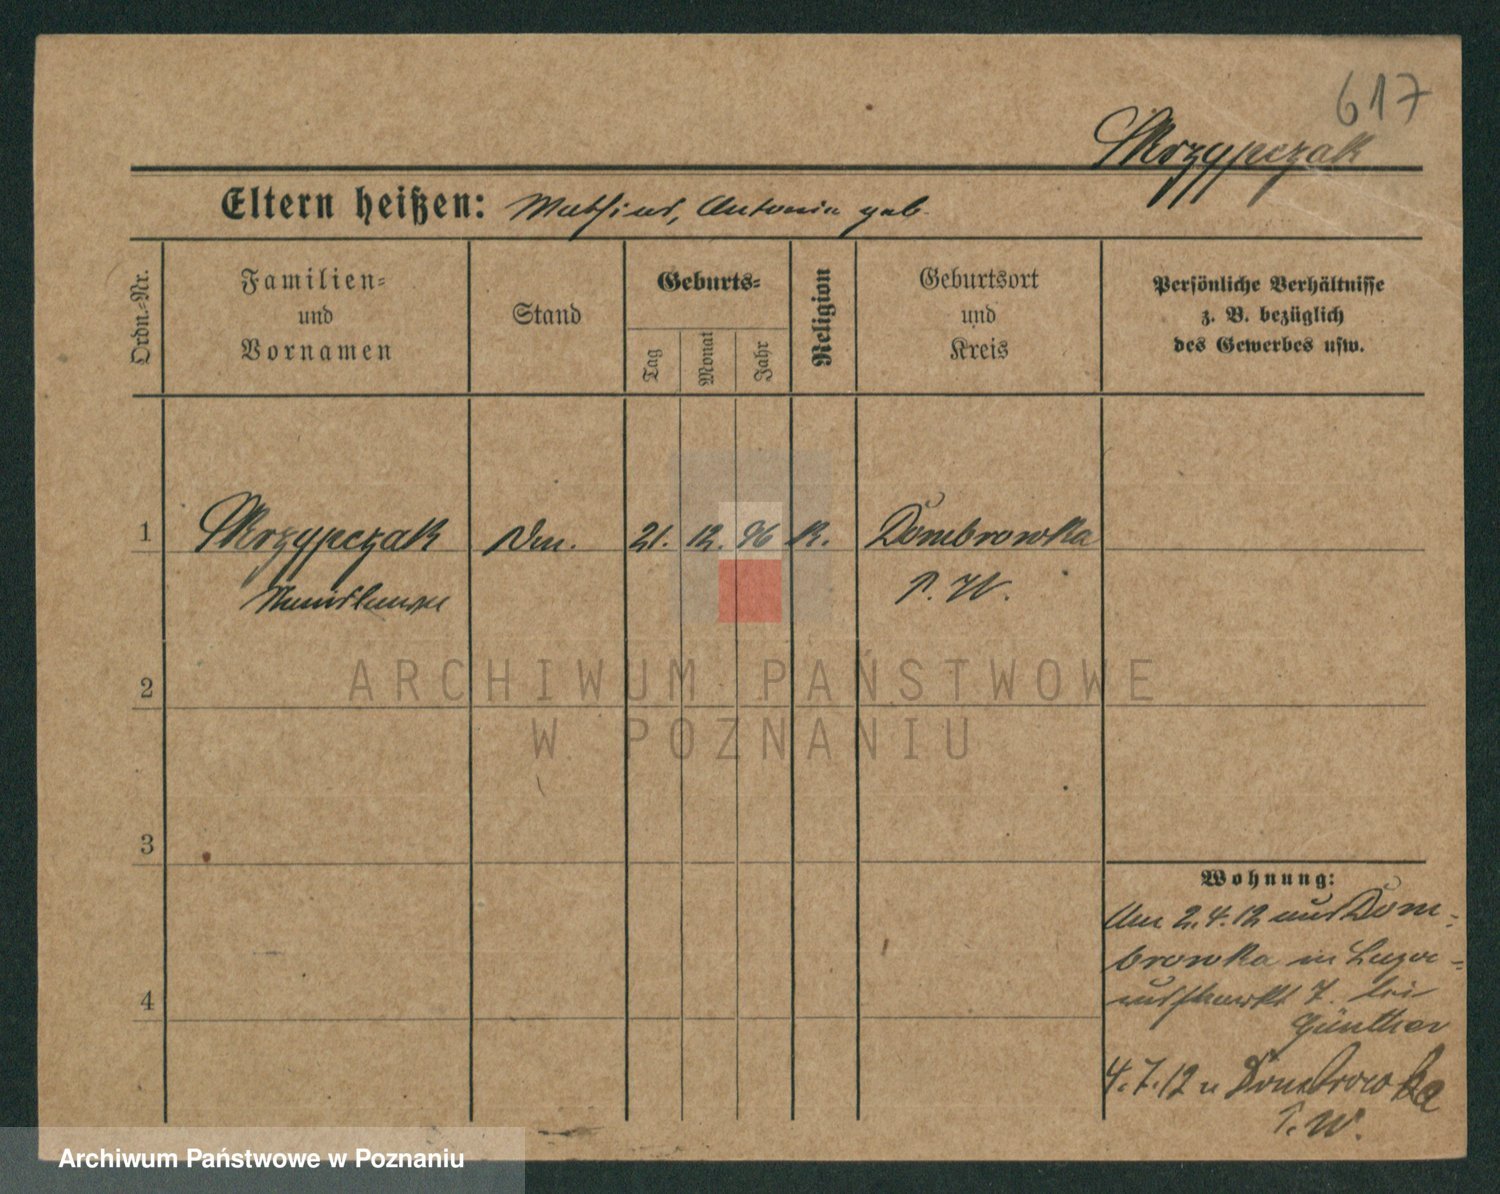 617
Skrzypczak
Eltern heißen: Mathias, Antonia geb.
Ordn.-Nr.
Familien-
und
Vornamen
Stand
Geburts-
Tag
Monat
Jahr
Religion
Geburtsort
und
Kreis
Persönliche Verhältnisse
z. B. bezüglich
des Gewerbes usw.
1 Skrzypczak 21. 12. 96 K. Dombrowka
P. W.
2
3
4
Wohnung:
Am 2.4.12 aus Dom-
browka in
7. bei
Günther
4.7.12 n Dombrowka
P. W.
ARCHIWUM PAŃSTWOWE
W POZNANIU
Archiwum Państwowe w Poznaniu